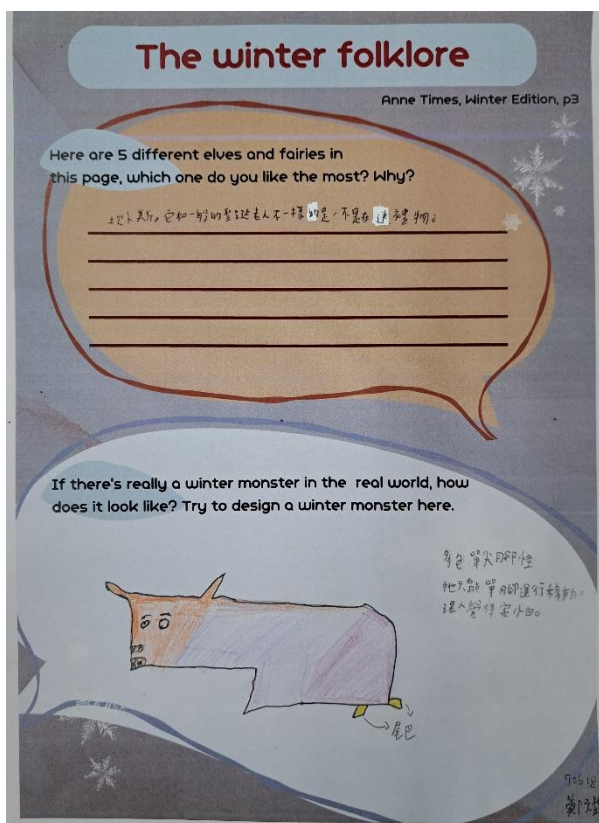 The winter folklore
Anne Times, Winter Edition, p3
Here are 5 different elves and fairies in
this page, which one do you like the most? Why?
它和一般的聖誕老人不一樣的是,不是在送禮物。
If there's really a winter monster in the real world, how
does it look like? Try to design a winter monster here.
多色單尖腳怪
他只能單腳進行移動,
讓人覺得害怕。
尾巴